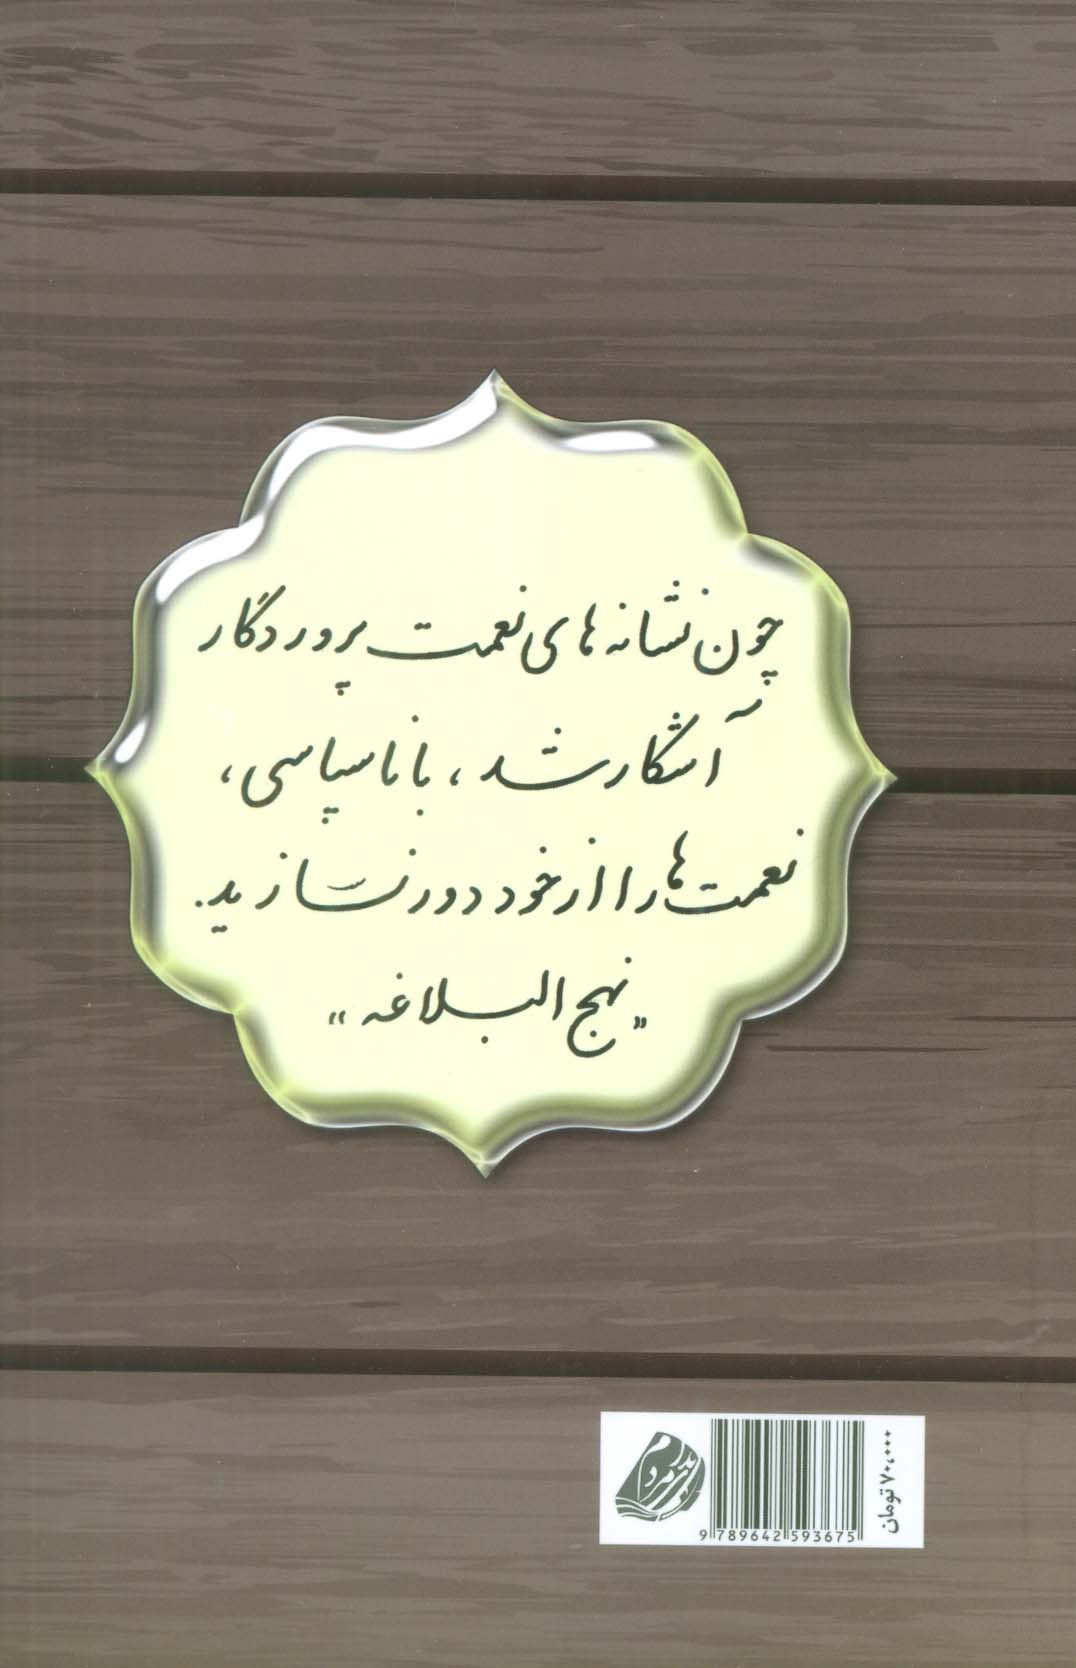 چون نشانه های نعمت پروردگار
آشکار شد، با ناسپاسی،
نعمت‌ها را از خود دور نسازید.
"نهج البلاغه"
۷۰،۰۰۰ تومان
9 789642 593675